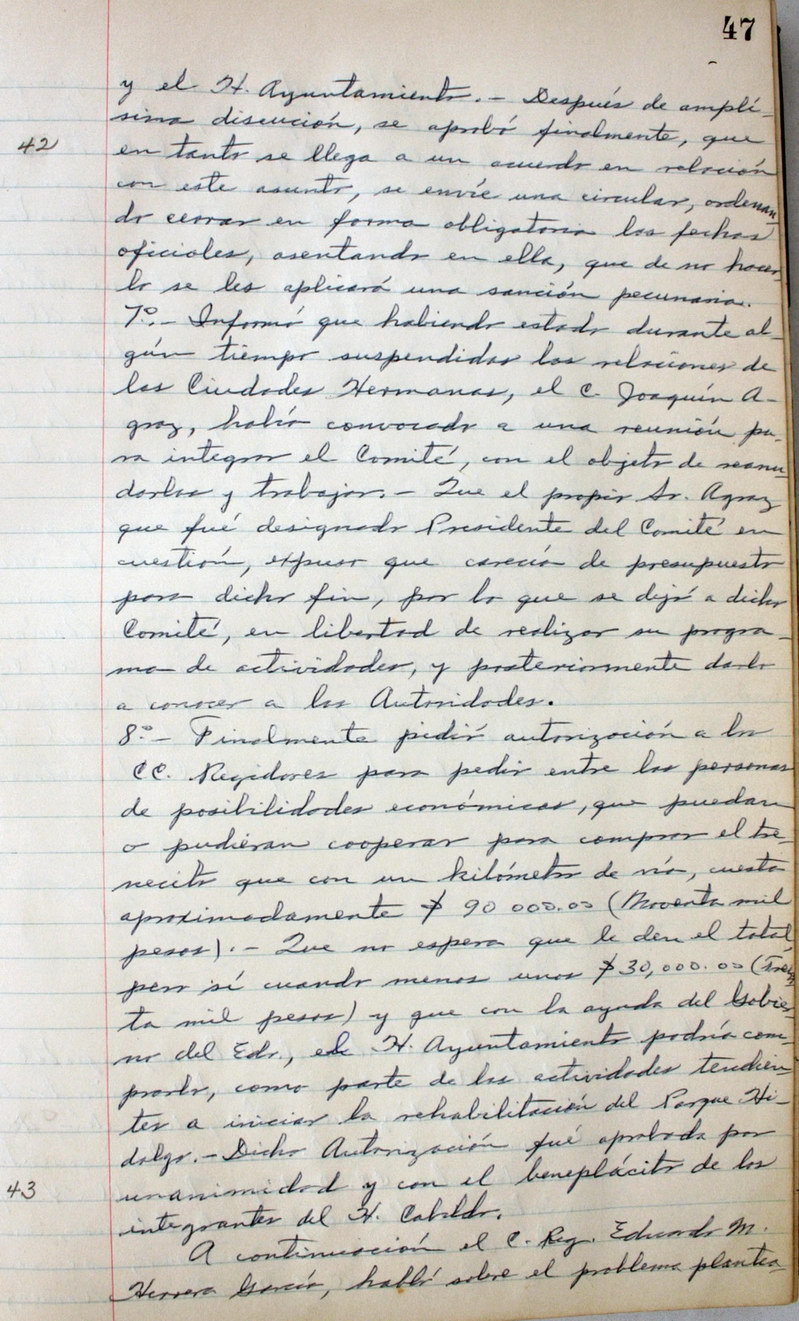 47
y el H. Ayuntamiento.- Después de amplí-
sima discución, se aprobó finalmente, que
42
en tanto se llega a un acuerdo en relación
con este asunto, se envíe una circular, ordenan-
do cerrar en forma obligatoria las fechas
oficiales, asentando en ella, que de no hacer-
lo se les aplicará una sanción pecuniaria.
7º.- Informó que habiendo estado durante al-
gún tiempo suspendidas las relaciones de
las Ciudades Hermanas, el C. Joaquín A-
graz, había convocado a una reunión pa-
ra integrar el Comité, con el objeto de reanu-
darlas y trabajar.- Que el propio Sr. Agraz
que fué designado Presidente del Comité en
cuestión, expuso que carecía de presupuesto
para dicho fin, por lo que se dejó a dicho
Comité, en libertad de realizar su progra-
ma de actividades, y posteriormente darlo
a conocer a las Autoridades.
8º- Finalmente pidió autorización a los
CC. Regidores para pedir entre las personas
de posibilidades económicas, que puedan
o pudieran cooperar para comprar el tre-
necito que con un kilómetro de vía, cuesta
aproximadamente $ 90 000.00 (Noventa mil
pesos).- Que no espera que le den el total
pero sí cuando menos unos $30,000.00 (Trein-
ta mil pesos) y que con la ayuda del Gobier-
no del Edo., el H. Ayuntamiento podría com-
prarlo, como parte de las actividades tendien-
tes a iniciar la rehabilitación del Parque Hi-
dalgo.- Dicha Autorización fué aprobada por
43
unanimidad y con el beneplácito de los
integrantes del H. Cabildo.
A continuación el C. Reg. Eduardo M.
Herrera García, habló sobre el problema plantea-